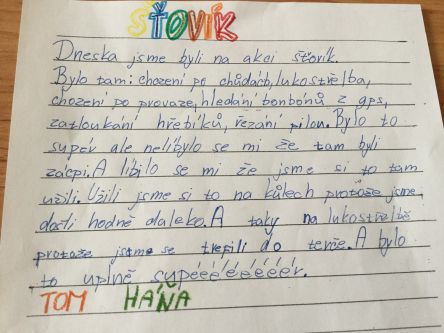 ŠŤOVÍK
Dneska jsme byli na akci šťovík.
Bylo tam: chození po chůdách, lukostřelba,
chození po provaze, hledání bonbónů z gps,
zatloukání hřebíků, řezání pilou. Bylo to
supér ale nelíbylo se mi že tam byli
zácpi. A líbilo se mi že jsme si to tam
užili. Užili jsme si to na kůlech protože jsme
došli hodně daleko. A taky na lukostřelbě
protože jsme se trefili do terče. A bylo
to uplně supéééééééér.
TOM HÁŇA